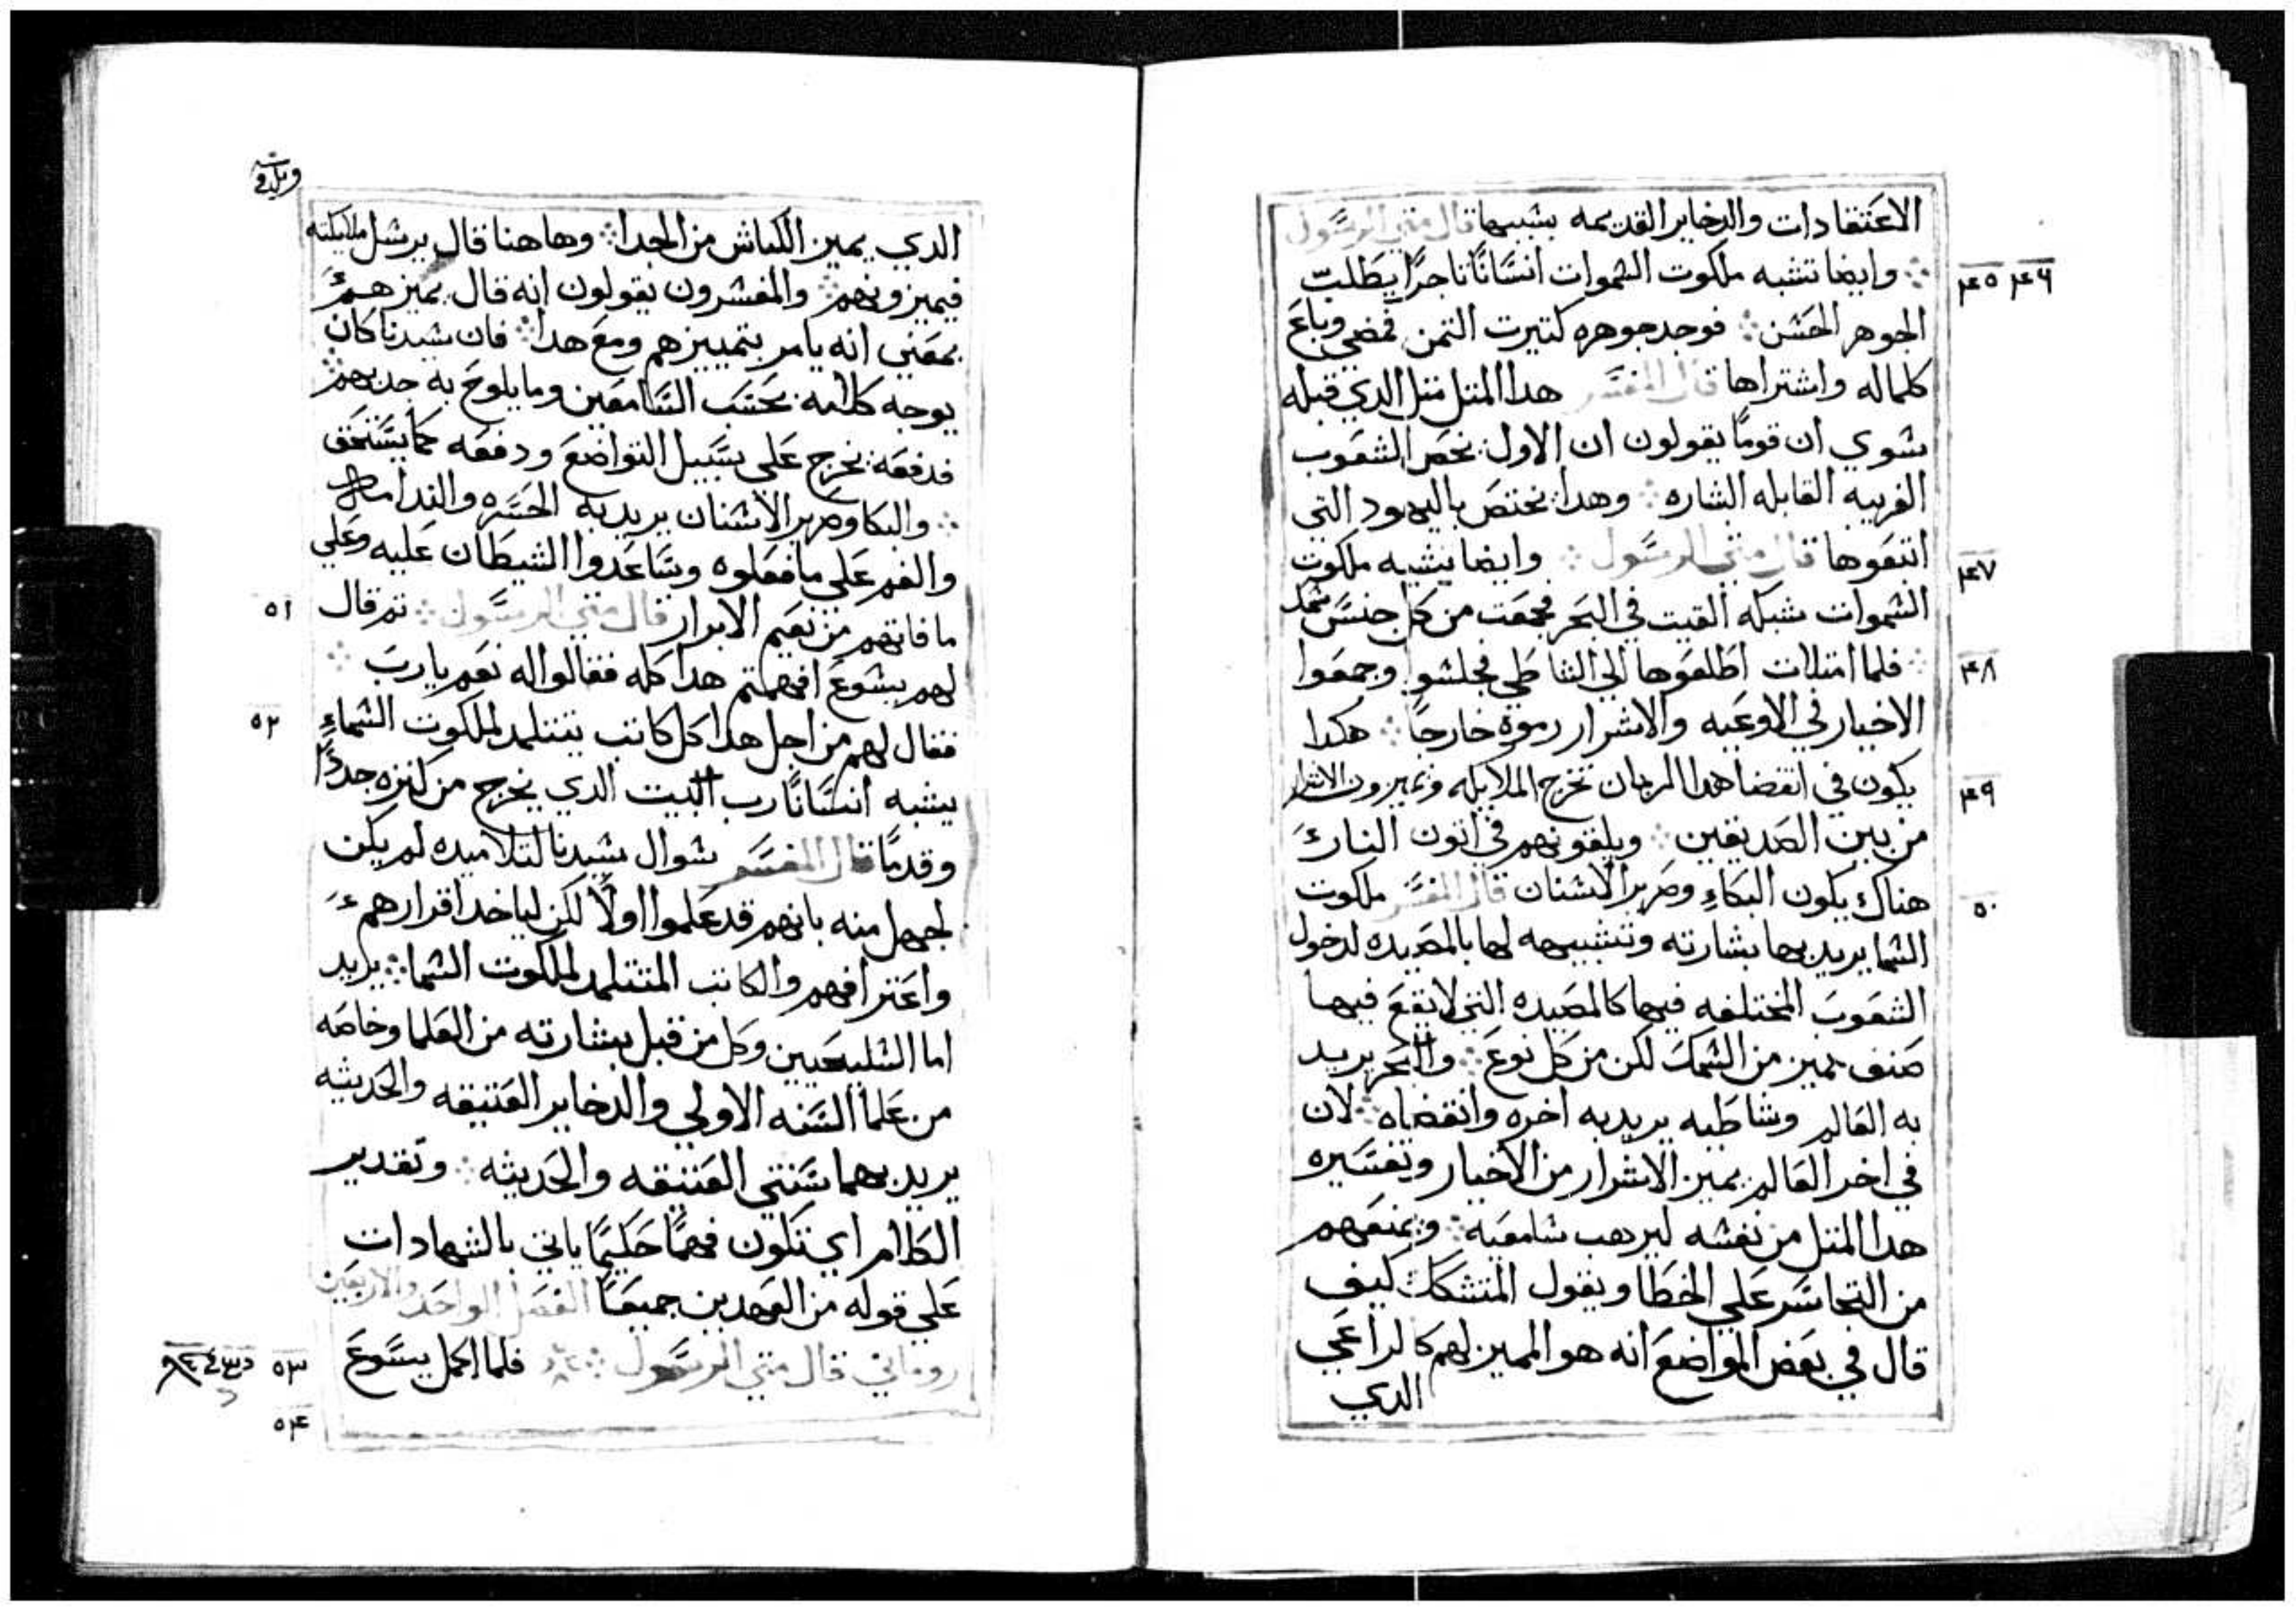 الاعتقادات والدخاير القديمه بسببها قال متي الرسول
۴۵ ۴۶
وايضا تشبه ملكوت السموات انسانًا تاجرًا يطلب
الجوهر الحسن فوجد جوهره كتيرت التمن فمضي وباع
كلماله واشتراها قال المفسر هدا المتل متل الدي قبله
سوي ان قومًا يقولون ان الاول يخص الشعوب
الغريبه القابله البشاره وهدا يختص باليهود التي
انتقوها قال متي الرسول وايضا يشبه ملكوت
۴۷
السموات شبكه القيت في البحر فجمعت من كل جنس سمك
فلما امتلات اطلعوها الي الشاطي فجلسوا وجمعوا
۴۸
الاخيار في الاوعيه والاشرار رموه خارجًا هكدا
يكون في انقضا هدا الزمان تخرج الملايكه ويميزون الاشرار
۴۹
من بين الصديقين ويلقونهم في اتون النار
هناك يكون البكاء وصرير الاسنان قال المفسر ملكوت
۵۰
السما يريد بها بشارته وتشبيهه لها بالمصيده لدخول
الشعوب المختلفه فيها كالمصيده التي لا يقع فيها
صنف مميز من السمك لكن من كل نوع والبحر يريد
به العالم وشاطيه يريد به اخره وانقضاه لان
في اخر العالم يميز الاشرار من الاخيار وتفسيره
هدا المتل من نفسه ليرهب سامعيه ويمنعهم
من التجاسر علي الخطا ويقول المتشكك كيف
قال في بعض المواضع انه هو المميز لهم كالراعي
الدي
الدي يميز الكباش من الجدا وهاهنا قال يرسل ملايكته
فيميزونهم والمفسرون يقولون انه قال يميزهم
بمعني انه يامر بتمييزهم ومع هدا فان سيدنا كان
يوجه كلامه بحسب السامعين وما يلوح به جديهم
فدفعه يخرج علي سبيل التواضع ودفعه كما يستحق
والبكا وصرير الاسنان يريد به الحسره والندامه
والغم علي ما فعلوه وساعدوا الشيطان عليه وعلي
ما فاتهم من نعيم الابرار قال متي الرسول تم قال
۵۱
لهم يسوع افهمتم هدا كله فقالوا له نعم يارب
فقال لهم من اجل هدا كل كاتب يتتلمد لملكوت السماء
۵۲
يشبه انسانًا رب البيت الدي يخرج من كنزه جددًا
وقدمًا قال المفسر سوال سيدنا لتلاميده لم يكن
لجهل منه بانهم قد علموا اولًا لكن لياخد اقرارهم
واعترافهم والكاتب المتتلمد لملكوت السما يريد
اما السليحيين وكل من قبل بشارته من العلما وخاصه
من علما السنه الاولي والدخاير العتيقه والحديثه
يريد بهما سنتي العتيقه والحديثه وتقدير
الكلام اي تكون فهمًا حكيمًا ياتي بالشهادات
علي قوله من العهدين جميعًا الفصل الواحد والاربعين
روماني قال متي الرسول فلما اكمل يسوع
۵۳
۵۴